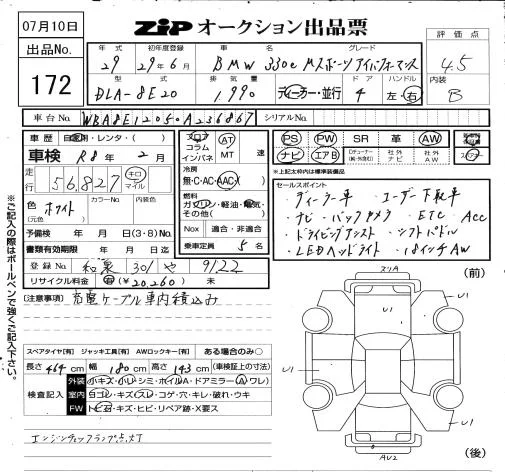 07月10日
ZIP オークション出品票
出品No.
172
年式 初年度登録 車名 グレード
29 29年6月 BMW 330e Mスポーツ アイパフォーマンス
型式 排気量 ドア ハンドル
DLA-8E20 1,990 ディーラー・並行 4 左・右
評価点
4.5
内装
B
車台No. WBA8E12050A236867 シリアルNo.
車歴 自家用・レンタ・( )
車検 R8年2月
走行 56,827 キロ マイル
色 ホワイト (元色) カラーNo. 内装色
予備検 年 月 日(3・8)No.
書類有効期限 年 月 日迄
登録No. 和泉 301 や 9122
リサイクル料金 有 ¥20,260) 未
フロア コラム インパネ AT MT 速
冷房
無・C・AC・AAC・( )
燃料
ガソリン・軽油・電気・その他( )
Nox 適合・非適合
乗車定員 5名
PS PW SR 革 AW
ナビ エアB 社外ナビ 社外AW
*上記太枠内は標準装備品
セールスポイント
・ディーラー車 ・ユーザー下取車
・ナビ ・バックカメラ ・ETC ・ACC
・ドライビングアシスト ・シフトパドル
・LEDヘッドライト ・18インチAW
[注意事項] 充電ケーブル車内積込み
スペアタイヤ[有] ジャッキ工具[有] AWロックキー[有] ある場合のみ○
長さ464cm 幅180cm 高さ143cm (車検証上の寸法)
検査記入
外装 小キズ・小ヘコ・シミ・ホイルA・ドアミラー(A・ワレ)
室内 ヨゴレ・キズ・スレ・コゲ・穴・キレ・破れ・ウキ
FW トビ石・キズ・ヒビ・リペア跡・X要ス
エンジンチェックランプ点灯
※ご記入の際はボールペンで強くご記入下さい。
スリA
(前)
U1
U1
U1
U1
AU2
(後)